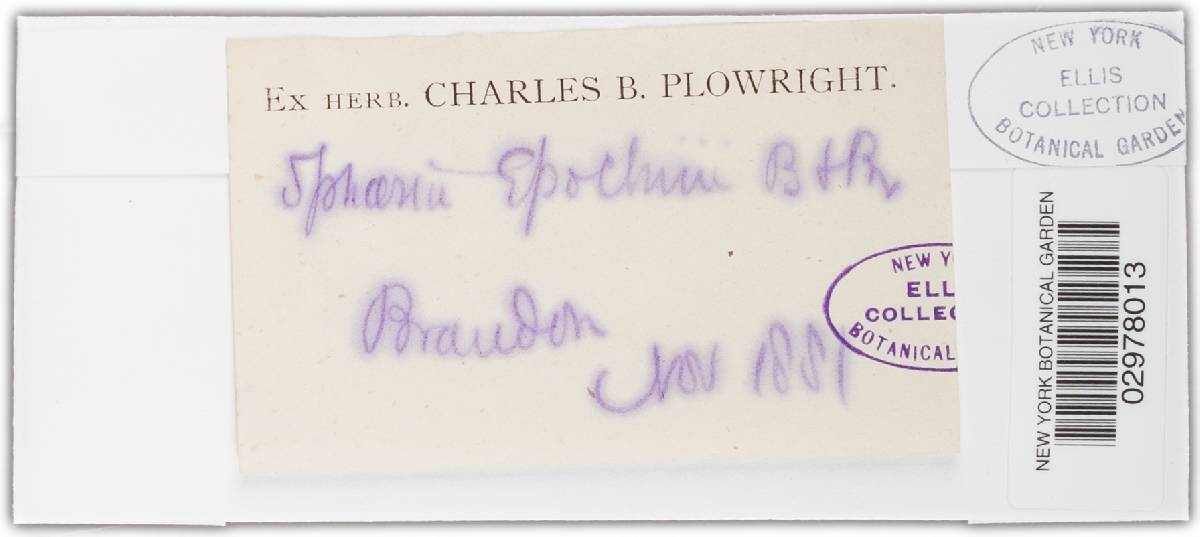 EX HERB. CHARLES B. PLOWRIGHT.
Sphæria Epochnii B & Br
Brandon
Nov 1881
NEW YORK
ELLIS
COLLECTION
BOTANICAL GARDEN
NEW Y
ELL
COLLEC
BOTANICAL
NEW YORK BOTANICAL GARDEN
02978013